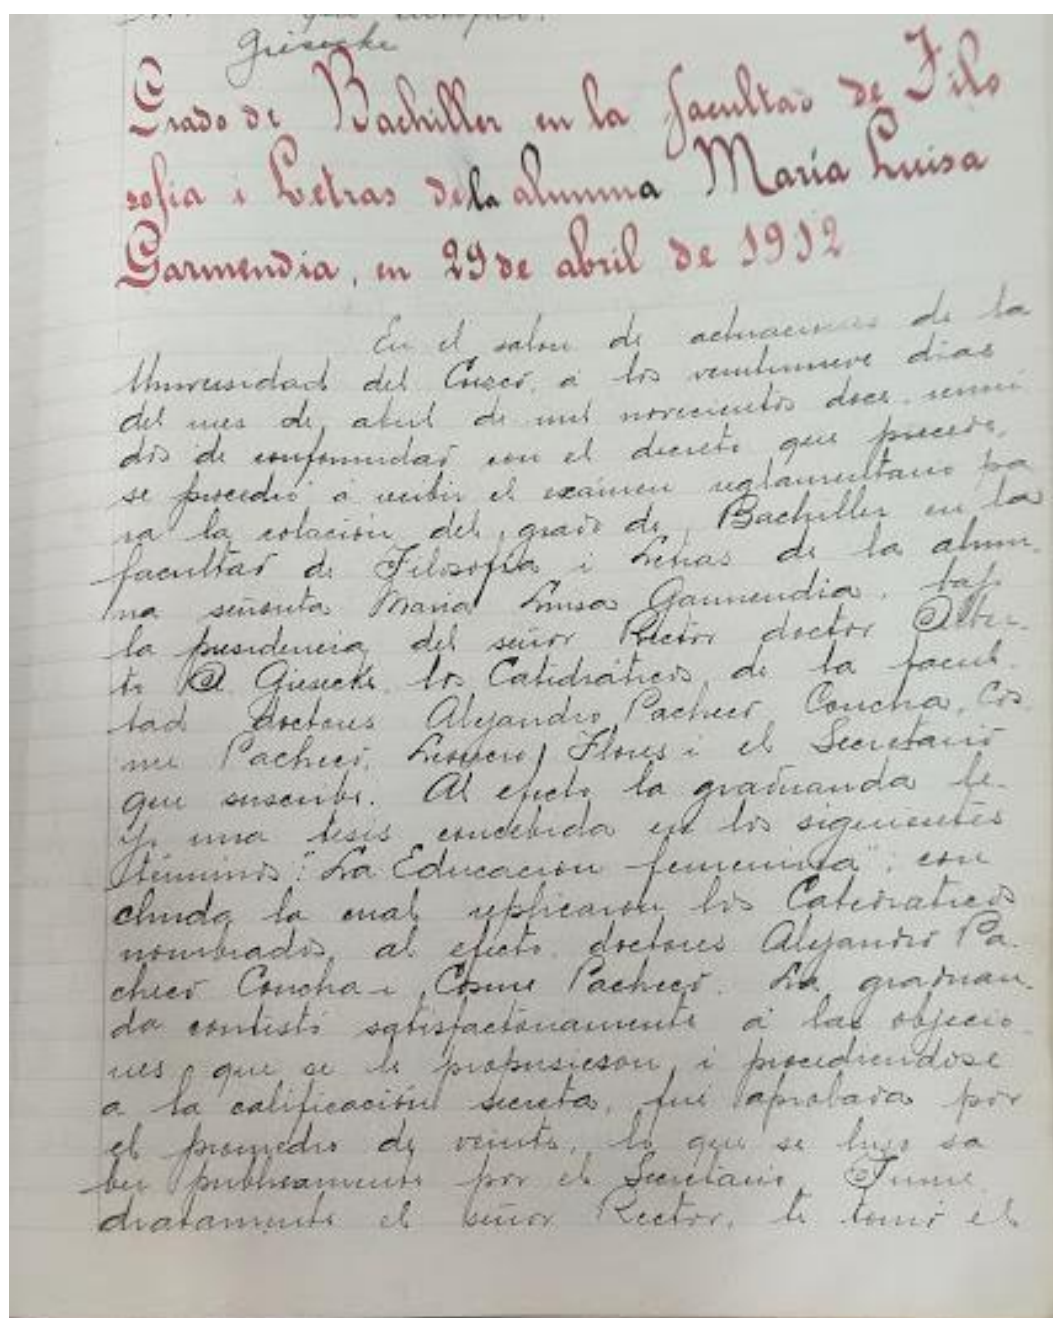 que
Giesecke
Grado de Bachiller en la facultad de Filo
sofia i Letras dela alumna María Luisa
Garmendia, en 29 de abril de 1912
En el salon de actuaciones de la
Universidad del Cuzco, á los veintinueve dias
del mes de abril de mil novecientos doce, reuni
dos de conformidad con el decreto que precede,
se procedió á recibir el exámen reglamentario pa
ra la colación del grado de Bachiller en la
facultad de Filosofia i Letras de la alum-
na señorita Maria Luisa Garmendia, bajo
la presidencia del señor Rector doctor Alber-
to A Giesecke, los Catedráticos de la facul-
tad doctores Alejandro Pacheco Concha, Cos
me Pacheco, Flores i el Secretario
que suscribe. Al efecto la graduanda le-
yó una tesis concebida en los siguientes
términos: "La Educacion femenina"; con
cluida la cual replicaron los Catedraticos
nombrados al efecto, doctores Alejandro Pa-
checo Concha i Cosme Pacheco. La graduan-
da contestó satisfactoriamente á las objecio
nes que se le propusieron i procediendose
a la calificación secreta, fué aprobada por
el promedio de veinte, lo que se hizo sa
ber publicamente por el Secretario. Inme
diatamente el señor Rector, le tomó el